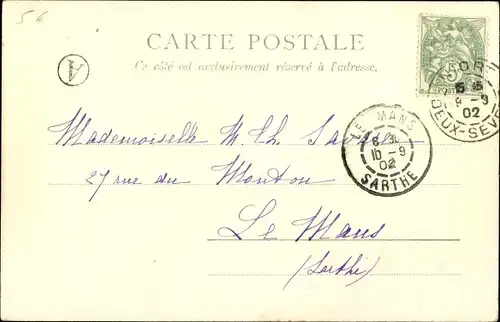 56
CARTE POSTALE
Ce côté est exclusivement réservé à l'adresse.
A
NIORT
9-9
02
DEUX-SÈVRES
LE MANS
10-9
02
SARTHE
Mademoiselle M. Th.
27 rue du Mouton
Le Mans
(Sarthe)